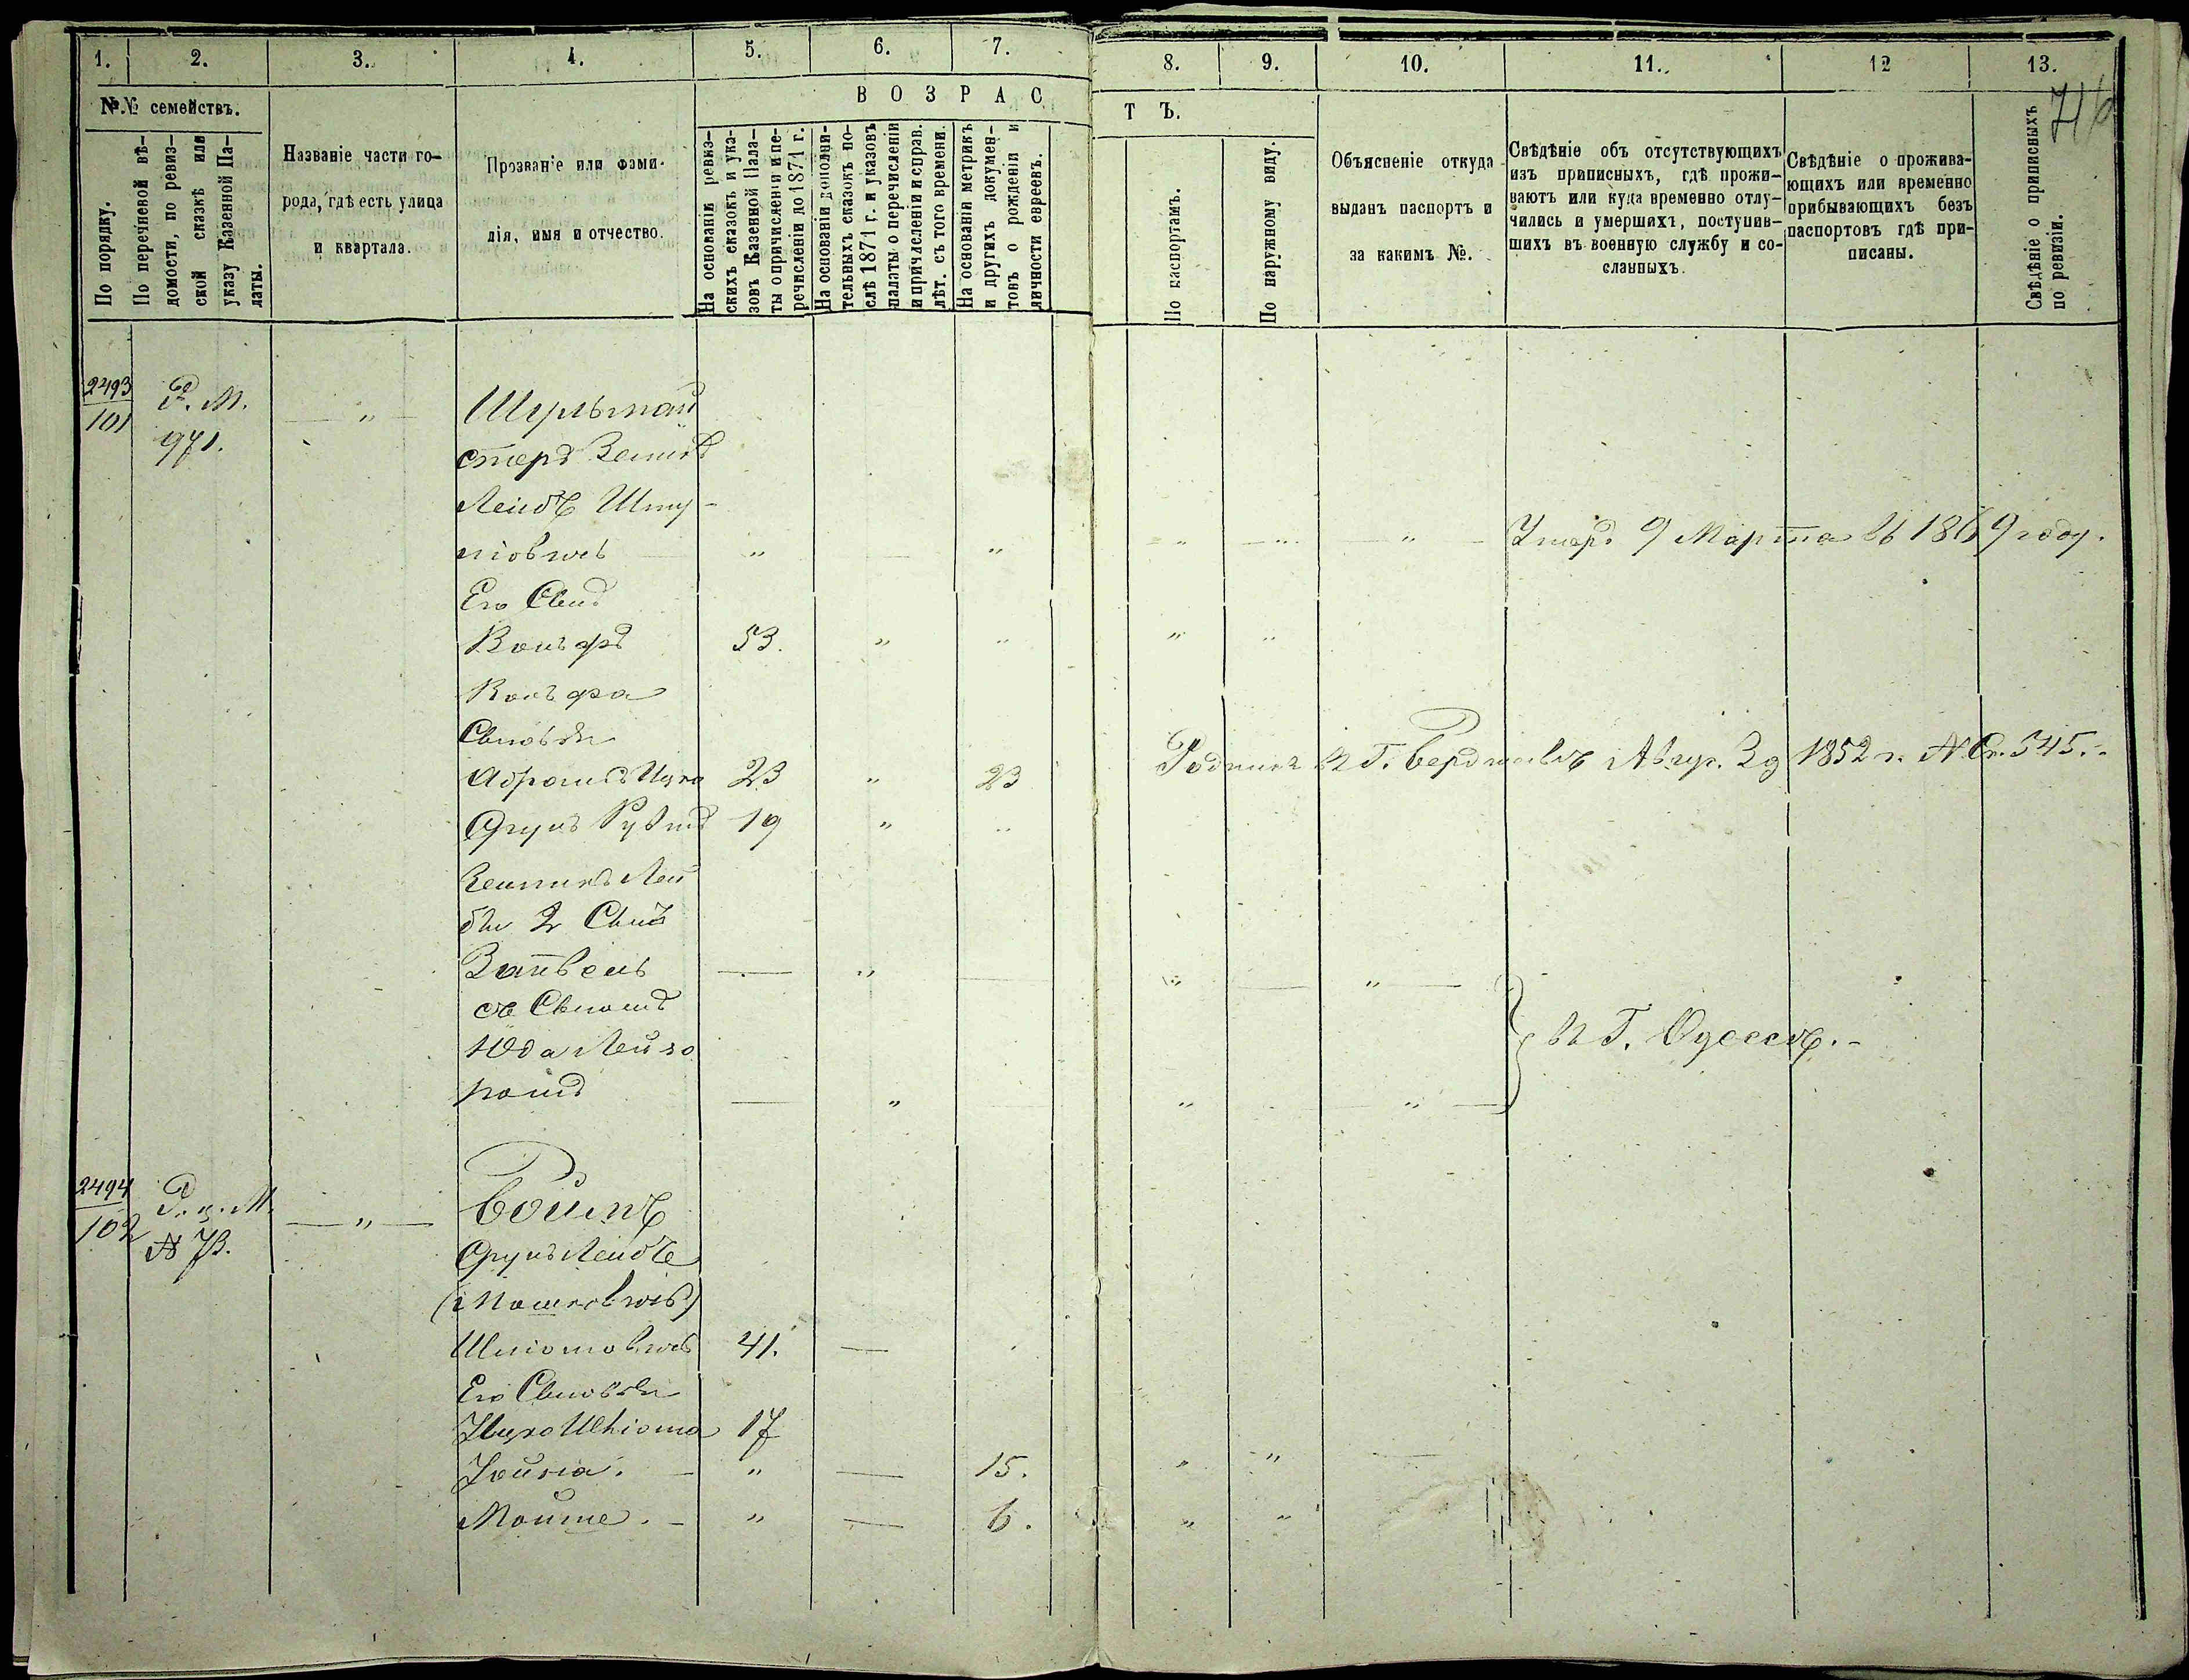 1. 2. 3. 4. 5. 6. 7. 8. 9. 10. 11. 12 13.
№.№ семействъ.
По порядку.
По перечневой вѣ-
домости, по ревиз-
ской сказкѣ или
указу Казенной Па-
латы.
Названіе части го-
рода, гдѣ есть улица
и квартала.
Прозваніе или фами-
лія, имя и отчество.
ВОЗРАС
ТЪ.
На основаніи ревиз-
скихъ сказокъ и ука-
зовъ Казенной Пала-
ты о причисленіи и пе-
речисленіи до 1871 г.
На основаніи дополни-
тельныхъ сказокъ по-
слѣ 1871 г. и указовъ
палаты о перечисленіи
и причисленіи и справ.
лѣт. съ того времени.
На основаніи метрикъ
и другихъ докумен-
товъ о рожденіи и
личности евреевъ.
По паспортамъ.
По наружному виду.
Объясненіе откуда
выданъ паспортъ и
за какимъ №.
Свѣдѣніе объ отсутствующихъ
изъ приписныхъ, гдѣ прожи-
ваютъ или куда временно отлу-
чились и умершихъ, поступив-
шихъ въ военную службу и со-
сланныхъ.
Свѣдѣніе о прожива-
ющихъ или временно
прибывающихъ безъ
паспортовъ гдѣ при-
писаны.
Свѣдѣніе о приписныхъ
по ревизіи.
2493
101
Р. М.
971.
— " —
Шульмай
стеръ Зельикъ
Лейбъ Шму-
ліовичъ — " — " — " — " — " — Умеръ 9 Марта въ 1869 году.
Его Сынъ
Вольфъ 53. " " " "
Вольфа
Сыновья
Абрамъ Ицко 23 " 23 Родился въ Г. Бердичевѣ Авгус. 3 д 1852 г. № Ст. 545.-
Сруль Рувинъ 19 " "
Зельикъ Лей
бы 2 Сынъ
Затвель — " — " — " —
съ Сыномъ
Юда Лейзо
ромъ — " — " — " —
въ Г. Одессѣ.-
2494
102
Р. д. М.
№ 73.
— " —
Боймъ
Сруль Лейбъ
(Мошковичъ)
Шліомовичъ 41. —
Его Сыновья
Ицко Шліома 17
Хаимъ. — " — 15. " " —
Мойше. — " — 6. " "